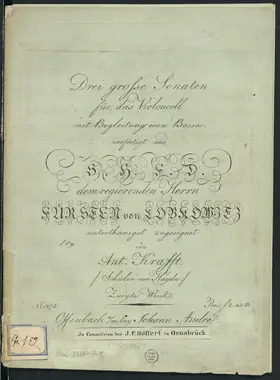 Drei große Sonaten
für das Violoncell
mit Begleitung eines Basses,
verfertigt und
S. H. E. D.
dem regierenden Herrn
FÜRSTEN von LOBKOWITZ
unterthänigst zugeeignet
von
Ant. Krafft
Schüler von Haydn
Zweytes Werk
Offenbach a/m, bey Johann André
In Commission bei J. F. Höffert in Osnabrück